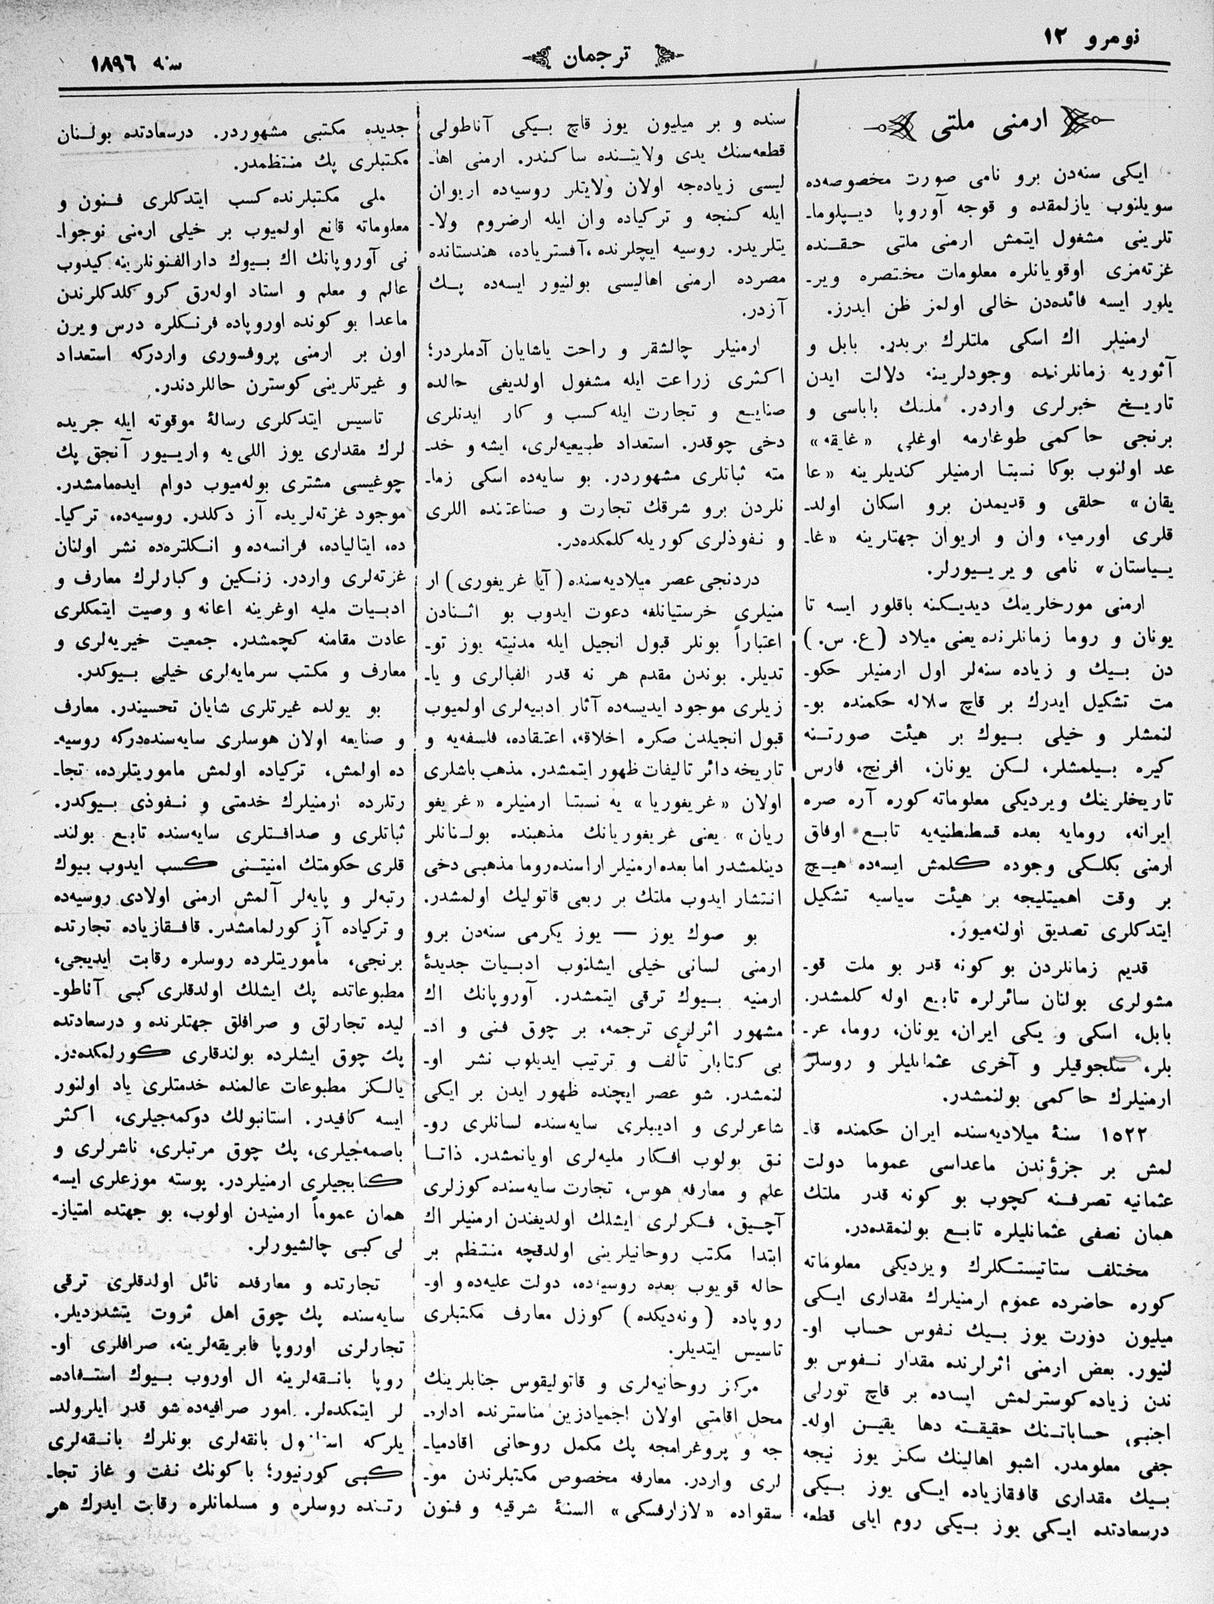 نومرو ١٢
ترجمان
سنه ١٨٩٦
ارمنی ملتی
ایکی سنه‌دن برو نامی صورت مخصوصه‌ده
سویلنوب یازلمقده و قوجه آوروپا دیپلوما-
تلرینی مشغول ایتمش ارمنی ملتی حقنده
غزته‌مزی اوقویانلره معلومات مختصره ویر-
یلور ایسه فائده‌دن خالی اولمز ظن ایدرز.
ارمنیلر اك اسکی ملتلرك بریدر. بابل و
آثوریه زمانلرنده وجودلرینه دلالت ایدن
تاریخ خبرلری واردر. ملتك باباسی و
برنجی حاکمی طوغارمه اوغلی «غایقه»
عد اولنوب بوکا نسبتا ارمنیلر کندیلرینه «عا
یقان» حلقی و قدیمدن برو اسکان اولد-
قلری اورمیه، وان و اریوان جهتلرینه «غا-
یاستان» نامی ویریورلر.
ارمنی مورخلرینك دیدیکنه باقلور ایسه تا
یونان و روما زمانلرنده یعنی میلاد (ع. س.)
دن بیك و زیاده سنه‌لر اول ارمنیلر حکو-
مت تشکیل ایدرك بر قاچ سلاله حکمنده بو-
لنمشلر و خیلی بیوك بر هیئت صورتنه
کیره بیلمشلر، لکن یونان، افرنج، فارس
تاریخلرینك ویردیکی معلوماته کوره آره صره
ایرانه، رومایه بعده قسطنطنیه‌یه تابع اوفاق
ارمنی بکلکی وجوده کلمش ایسه‌ده هیچ
بر وقت اهمیتلیجه بر هیئت سیاسیه تشکیل
ایتدکلری تصدیق اولنه‌میوز.
قدیم زمانلردن بو کونه قدر بو ملت قو-
مشولری بولنان سائرلره تابع اوله کلمشدر.
بابل، اسکی و یکی ایران، یونان، روما، عر-
بلر، سلجوقیلر و آخری عثمانلیلر و روسلر
ارمنیلرك حاکمی بولنمشدر.
١٥٢٢ سنهٔ میلادیه‌سنده ایران حکمنده قا-
لمش بر جزؤندن ماعداسی عموما دولت
عثمانیه تصرفنه کچوب بو کونه قدر ملتك
همان نصفی عثمانلیلره تابع بولنمقده‌در.
مختلف ستاتیستکلرك ویردیکی معلوماته
کوره حاضرده عموم ارمنیلرك مقداری ایکی
میلیون دورت یوز بیك نفوس حساب او-
لنیور. بعض ارمنی اثرلرنده مقدار نفوس بو
ندن زیاده کوسترلمش ایسه‌ده بر قاچ تورلی
اجنبی حساباتنك حقیقته دها یقین اوله-
جغی معلومدر. اشبو اهالینك سکز یوز نیجه
بیك مقداری قافقازیاده ایکی یوز بیکی
درسعادتده ایکی یوز بیکی روم ایلی قطعه
سنده و بر میلیون یوز قاچ بیکی آناطولی
قطعه‌سنك یدی ولایتنده ساکندر. ارمنی اها-
لیسی زیاده‌جه اولان ولایتلر روسیه‌ده اریوان
ایله کنجه و ترکیاده وان ایله ارضروم ولا-
یتلریدر. روسیه ایچلرنده، آفستریاده، هندستانده
مصرده ارمنی اهالیسی بولنیور ایسه‌ده پك
آزدر.
ارمنیلر چالشقر و راحت یاشایان آدملردر؛
اکثری زراعت ایله مشغول اولدیغی حالده
صنایع و تجارت ایله کسب و کار ایدنلری
دخی چوقدر. استعداد طبیعیه‌لری، ایشه و خد-
مته ثباتلری مشهوردر. بو سایه‌ده اسکی زما-
نلردن برو شرقك تجارت و صناعتنده اللری
و نفوذلری کوریله کلمکده‌در.
دردنجی عصر میلادیه‌سنده (آیا غریغوری) ار
منیلری خرستیانلغه دعوت ایدوب بو اثنادن
اعتباراً بونلر قبول انجیل ایله مدنیته یوز تو-
تدیلر. بوندن مقدم هر نه قدر الفبالری و یا-
زیلری موجود ایدیسه‌ده آثار ادبیه‌لری اولمیوب
قبول انجیلدن صکره اخلاقه، اعتقاده، فلسفه‌یه و
تاریخه دائر تالیفات ظهور ایتمشدر. مذهب باشلری
اولان «غریغوریا» یه نسبتا ارمنیلره «غریغو
ریان» یعنی غریغوریانك مذهبنده بولنانلر
دینلمشدر اما بعده ارمنیلر اراسنده روما مذهبی دخی
انتشار ایدوب ملتك بر ربعی قاتولیك اولمشدر.
بو صوك یوز — یوز یکرمی سنه‌دن برو
ارمنی لسانی خیلی ایشلنوب ادبیات جدیدهٔ
ارمنیه بیوك ترقی ایتمشدر. آوروپانك اك
مشهور اثرلری ترجمه، بر چوق فنی و اد-
بی کتابلر تألف و ترتیب ایدیلوب نشر او-
لنمشدر. شو عصر ایچنده ظهور ایدن بر ایکی
شاعرلری و ادیبلری سایه‌سنده لسانلری رو-
نق بولوب افکار ملیه‌لری اویانمشدر. ذاتا
علم و معارفه هوس، تجارت سایه‌سنده کوزلری
آچیق، فکرلری ایشلك اولدیغندن ارمنیلر اك
ابتدا مکتب روحانیلرینی اولدقچه منتظم بر
حاله قویوب بعده روسیه‌ده، دولت علیه‌ده و او-
روپاده (ونه‌دیکده) کوزل معارف مکتبلری
تاسیس ایتدیلر.
مرکز روحانیه‌لری و قاتولیقوس جنابلرینك
محل اقامتی اولان اجمیادزین مناسترنده اداره-
جه و پروغرامجه پك مکمل روحانی اقادمیا-
لری واردر. معارفه مخصوص مکتبلرندن مو-
سقواده «لازارفسکی» السنهٔ شرقیه و فنون
جدیده مکتبی مشهوردر. درسعادتده بولنان
مکتبلری پك منتظمدر.
ملی مکتبلرنده کسب ایتدکلری فنون و
معلوماته قانع اولمیوب بر خیلی ارمنی نوجوا-
نی آوروپانك اك بیوك دارالفنونلرینه کیدوب
عالم و معلم و استاد اوله‌رق کرو کلدکلرندن
ماعدا بو کونده اوروپاده فرنکلره درس ویرن
اون بر ارمنی پروفسوری واردرکه استعداد
و غیرتلرینی کوسترن حاللردندر.
تاسیس ایتدکلری رسالهٔ موقوته ایله جریده
لرك مقداری یوز اللی‌یه واریور آنجق پك
چوغیسی مشتری بوله‌میوب دوام ایده‌مامشدر.
موجود غزته‌لریده آز دکلدر. روسیه‌ده، ترکیا-
ده، ایتالیاده، فرانسه‌ده و انکلتره‌ده نشر اولنان
غزته‌لری واردر. زنکین و کبارلرك معارف و
ادبیات ملیه اوغرینه اعانه و وصیت ایتمکلری
عادت مقامنه کچمشدر. جمعیت خیریه‌لری و
معارف و مکتب سرمایه‌لری خیلی بیوکدر.
بو یولده غیرتلری شایان تحسیندر. معارف
و صنایعه اولان هوسلری سایه‌سنده‌درکه روسیه-
ده اولمش، ترکیاده اولمش ماموریتلرده، تجا-
رتلرده ارمنیلرك خدمتی و نفوذی بیوکدر.
ثباتلری و صداقتلری سایه‌سنده تابع بولند-
قلری حکومتك امنیتنی کسب ایدوب بیوك
رتبه‌لر و پایه‌لر آلمش ارمنی اولادی روسیه‌ده
و ترکیاده آز کورلمامشدر. قافقازیاده تجارتده
برنجی، مأموریتلرده روسلره رقابت ایدیجی،
مطبوعاتده پك ایشلك اولدقلری کبی آناطو-
لیده تجارلق و صرافلق جهتلرنده و درسعادتده
پك چوق ایشلرده بولندقلری کورلمکده‌در.
یالکز مطبوعات عالمنده خدمتلری یاد اولنور
ایسه کافیدر. استانبولك دوکمه‌جیلری، اکثر
باصمه‌جیلری، پك چوق مرتبلری، ناشرلری و
کتابجیلری ارمنیلردر. پوسته موزعلری ایسه
همان عموماً ارمنیدن اولوب، بو جهتده امتیاز-
لی کبی چالشیورلر.
تجارتده و معارفده نائل اولدقلری ترقی
سایه‌سنده پك چوق اهل ثروت یتشدردیلر.
تجارلری اوروپا فابریقه‌لرینه، صرافلری او-
روپا بانقه‌لرینه ال اوروب بیوك استفاده-
لر ایتمکده‌لر. امور صرافیه‌ده شو قدر ایلرولد-
یلرکه بانقه‌لری بونلرك بانقه‌لری
کبی کورنیور؛ باکونك نفت و غاز تجا-
رتنده روسلره و مسلمانلره رقابت ایدرك هر